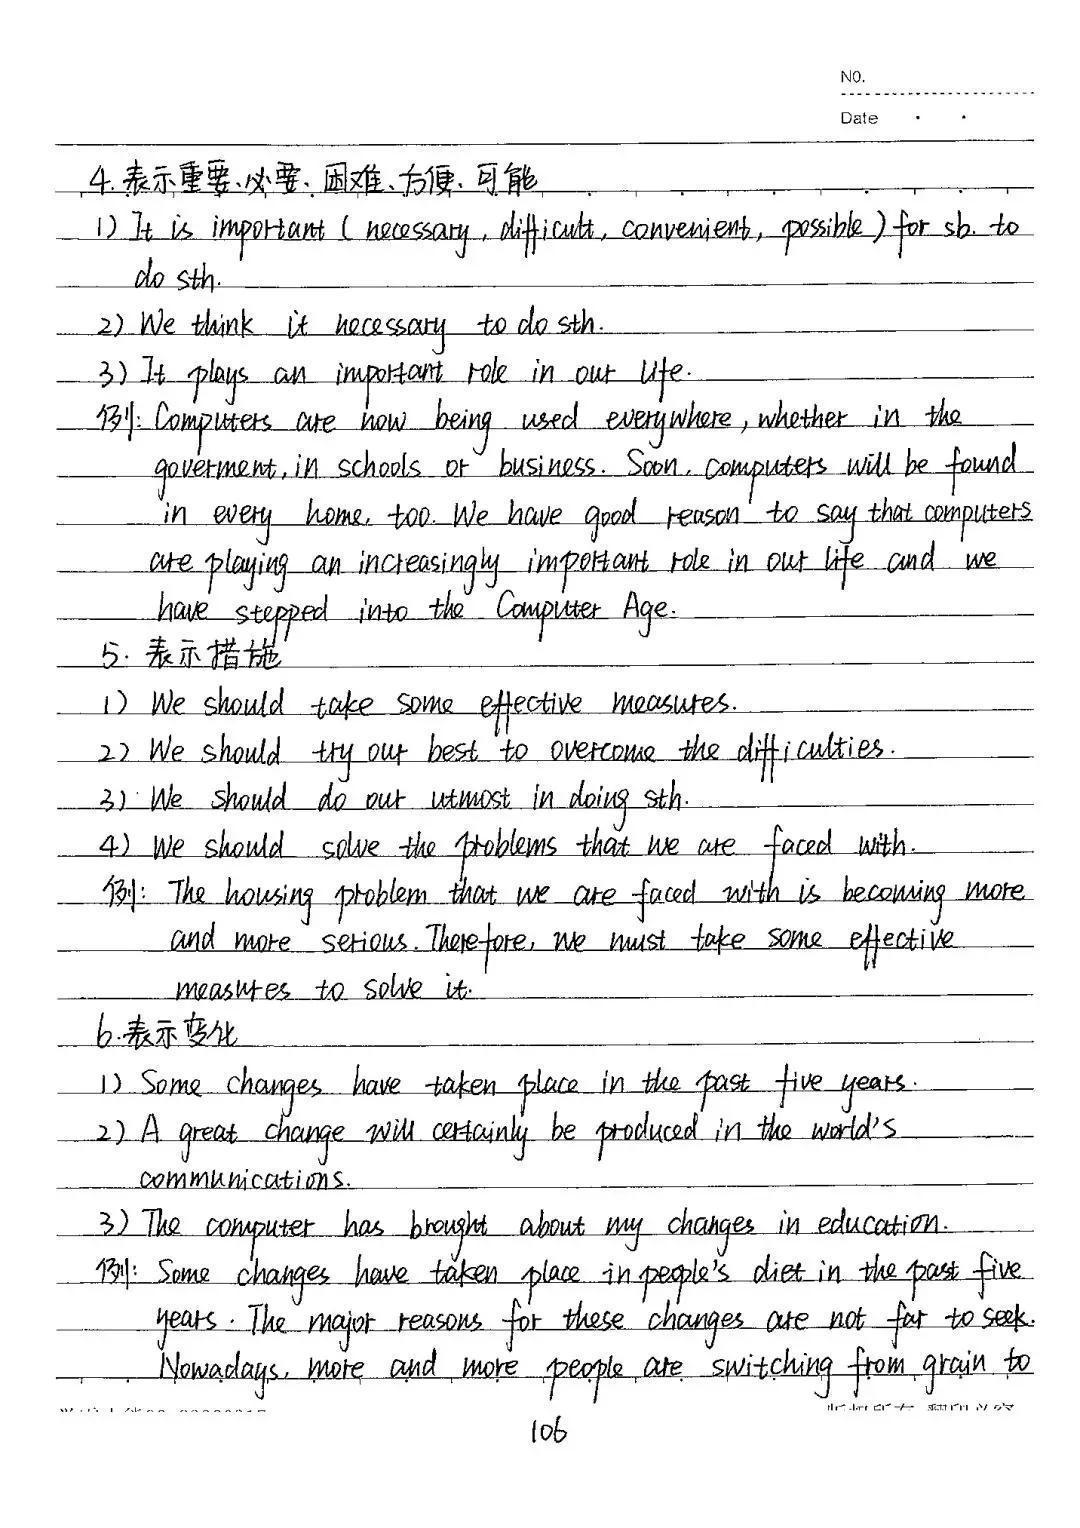 NO.
Date
4.表示重要、必要、困难、方便、可能
1) It is important ( necessary, difficult, convenient, possible ) for sb. to
do sth.
2) We think it necessary to do sth.
3) It plays an important role in our life.
例: Computers are now being used everywhere, whether in the
goverment, in schools or business. Soon, computers will be found
in every home, too. We have good reason to say that computers
are playing an increasingly important role in our life and we
have stepped into the Computer Age.
5. 表示措施
1) We should take some effective measures.
2) We should try our best to overcome the difficulties.
3) We should do our utmost in doing sth.
4) We should solve the problems that we are faced with.
例: The housing problem that we are faced with is becoming more
and more serious. Therefore, we must take some effective
measures to solve it.
6.表示变化
1) Some changes have taken place in the past five years.
2) A great change will certainly be produced in the world's
communications.
3) The computer has brought about my changes in education.
例: Some changes have taken place in people's diet in the past five
years. The major reasons for these changes are not far to seek.
Nowadays, more and more people are switching from grain to
106